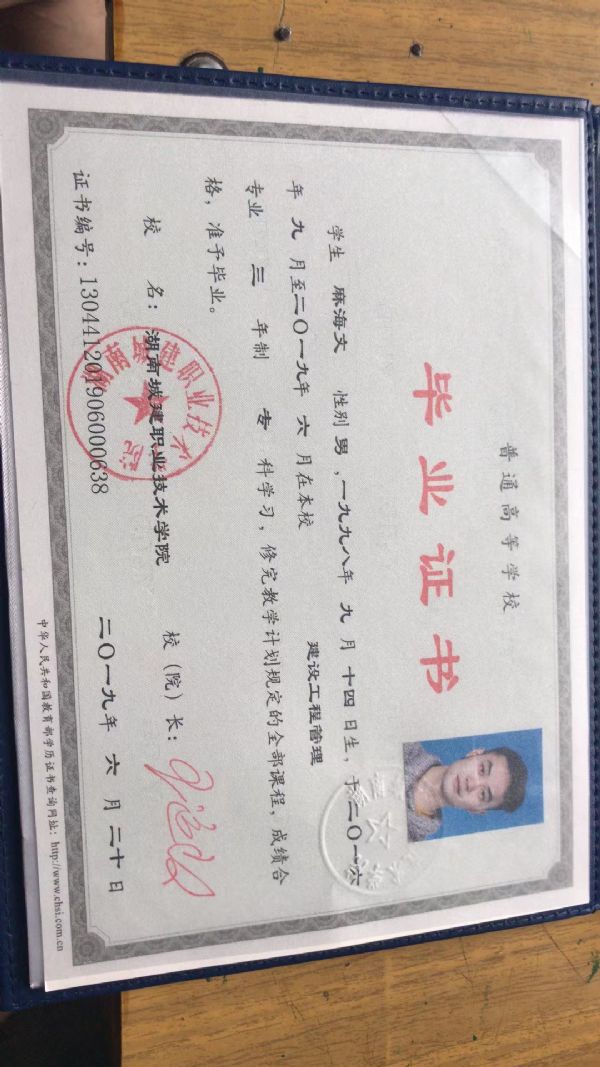 普通高等学校
毕业证书
学生 麻海文 性别 男，一九九八年 九 月 十四 日生，于二〇一六
年 九 月至二〇一九年 六 月在本校 建设工程管理
专业 三 年制 专 科学习，修完教学计划规定的全部课程，成绩合
格，准予毕业。
校 名：湖南城建职业技术学院 校（院）长：
证书编号：130441201906000638 二〇一九年 六 月 二十 日
中华人民共和国教育部学历证书查询网址：http://www.chsi.com.cn